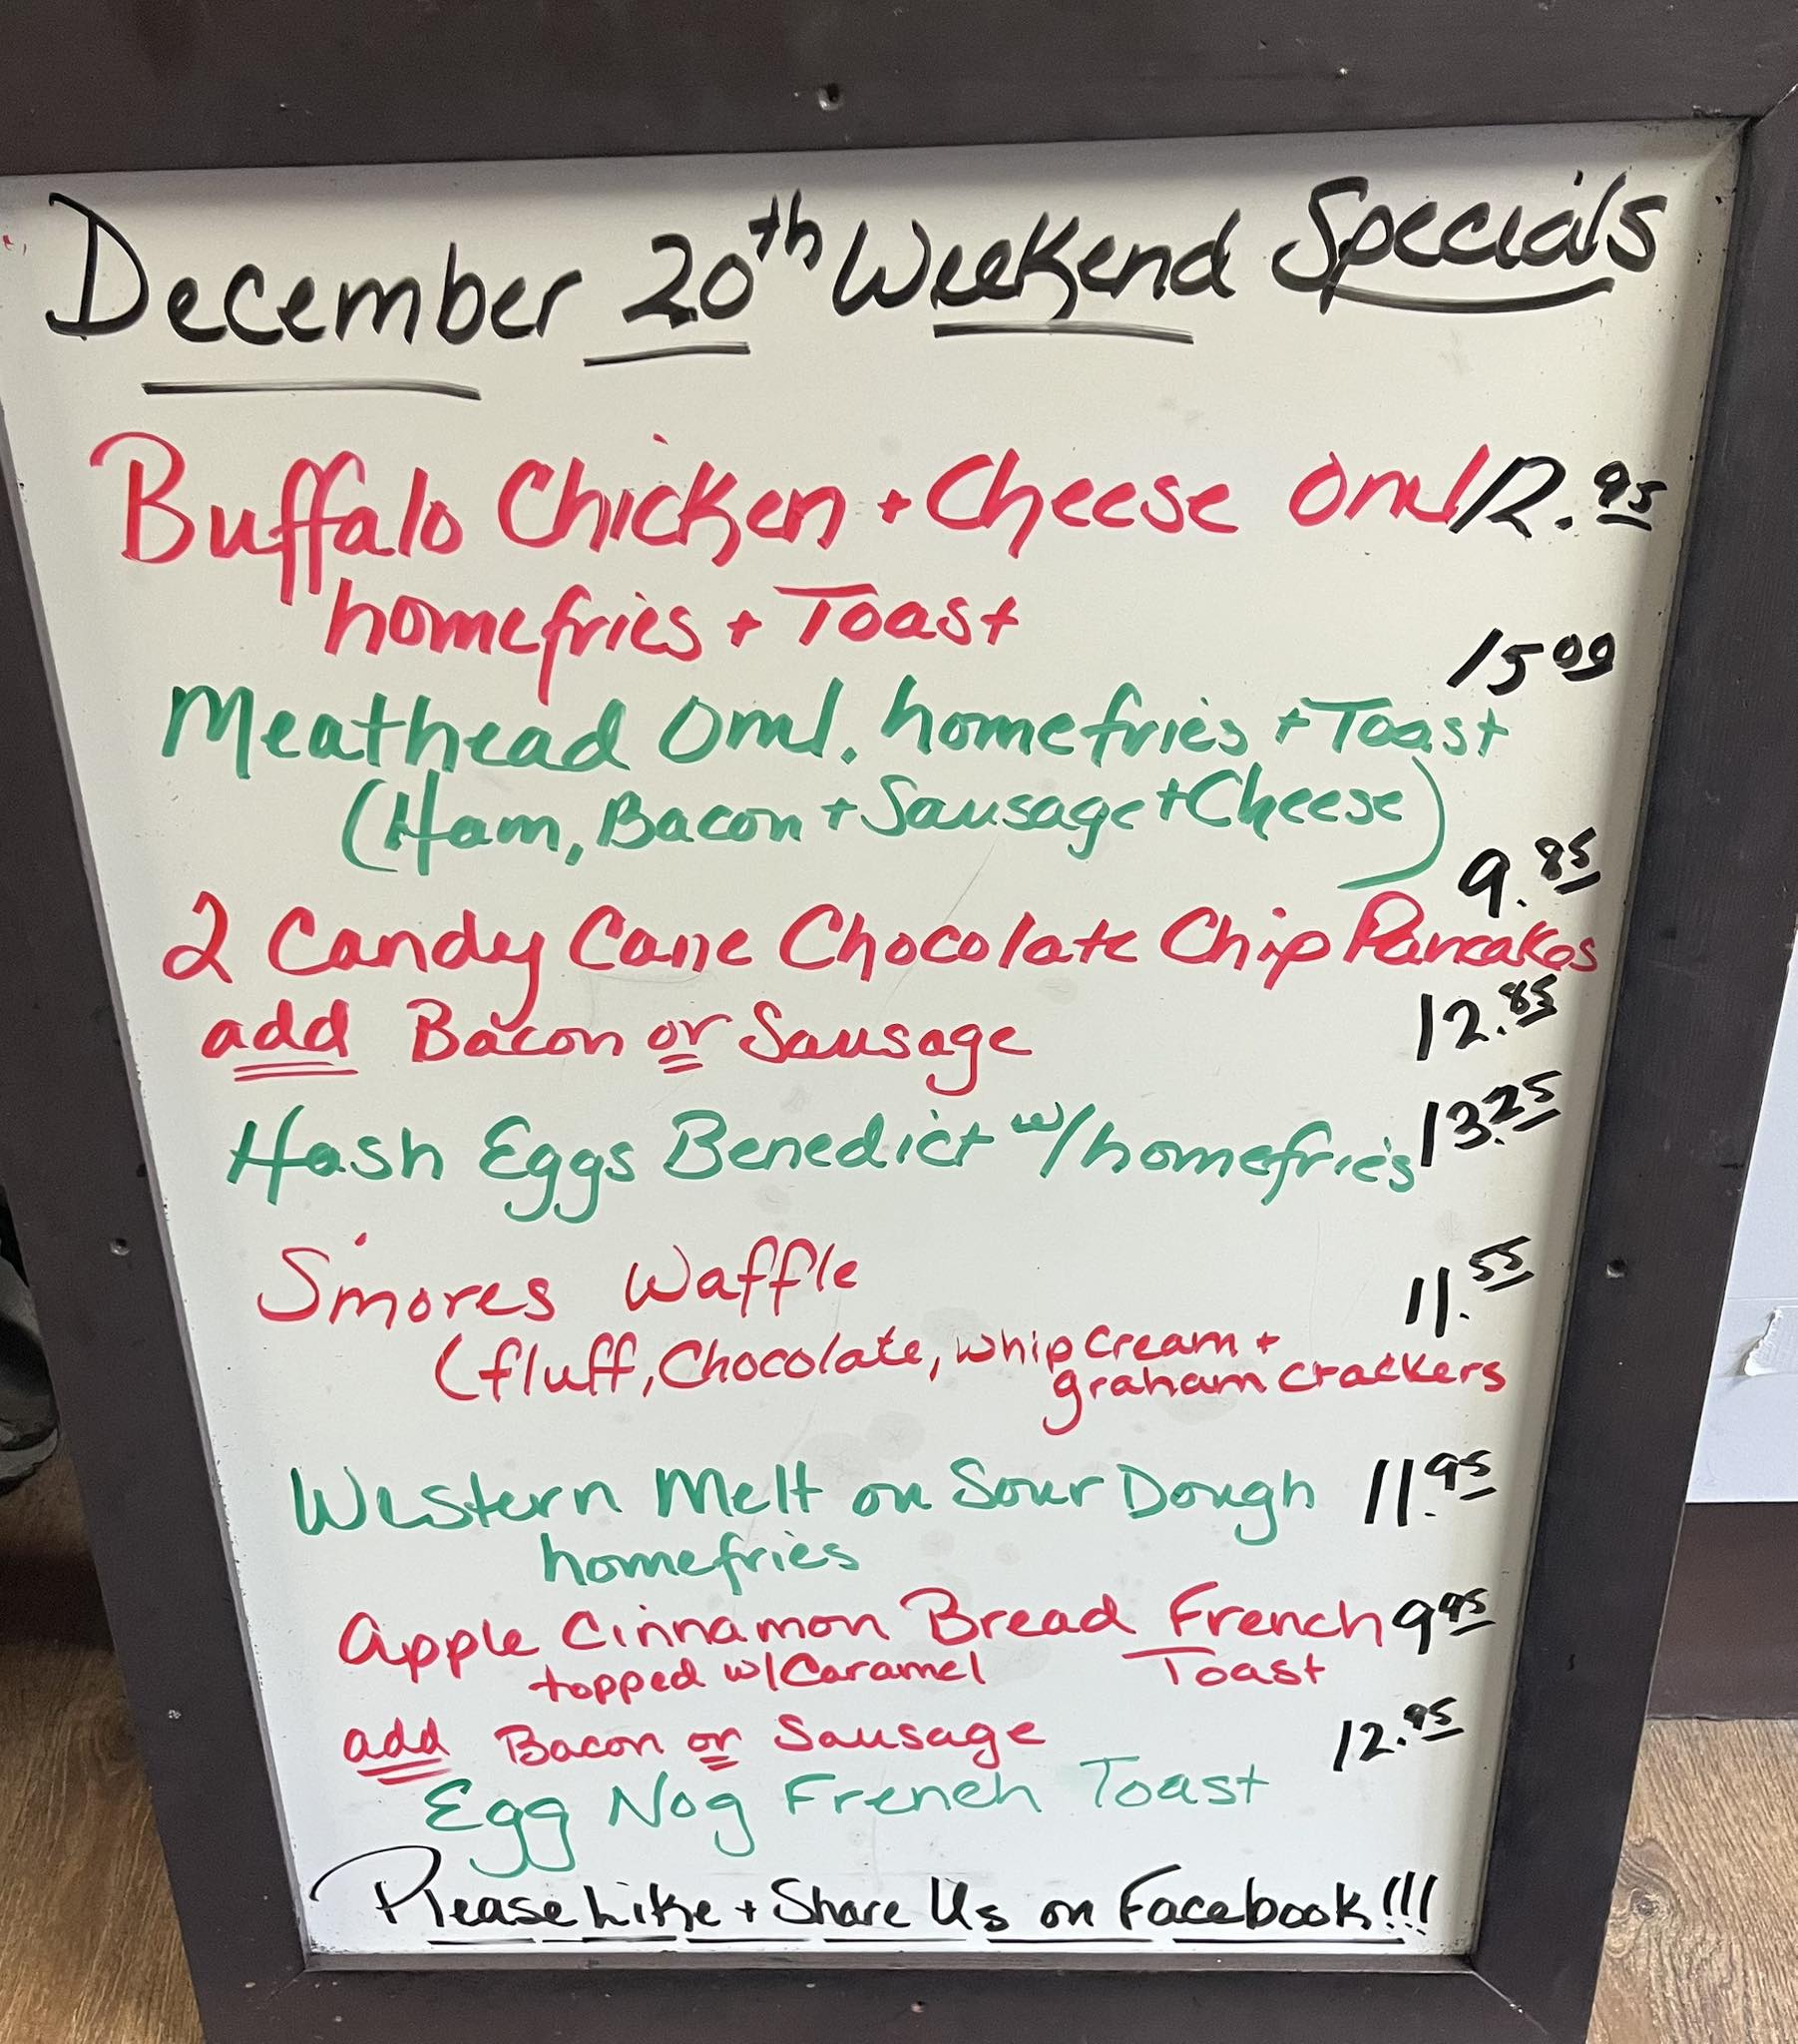 December 20th Weekend Specials
Buffalo Chicken + Cheese Oml 12.95
homefries + Toast
15 00
Meathead Oml. homefries + Toast
(Ham, Bacon + Sausage + Cheese)
9.85
2 Candy Cane Chocolate Chip Pancakes
add Bacon or Sausage 12.85
Hash Eggs Benedict w/homefries 13.25
S'mores Waffle 11.55
(fluff, Chocolate, whip Cream +
graham crackers
Western Melt on Sour Dough 11.95
homefries
Apple Cinnamon Bread French 9 95
topped w/Caramel Toast
add Bacon or Sausage 12.95
Egg Nog French Toast
Please Like + Share Us on Facebook!!!